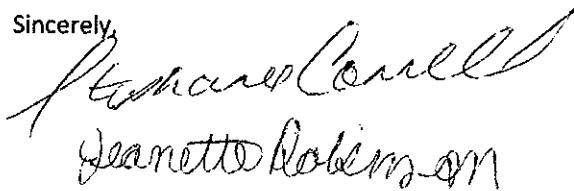 Sincerely,
Stephanie Connell
Jeanette Robinson